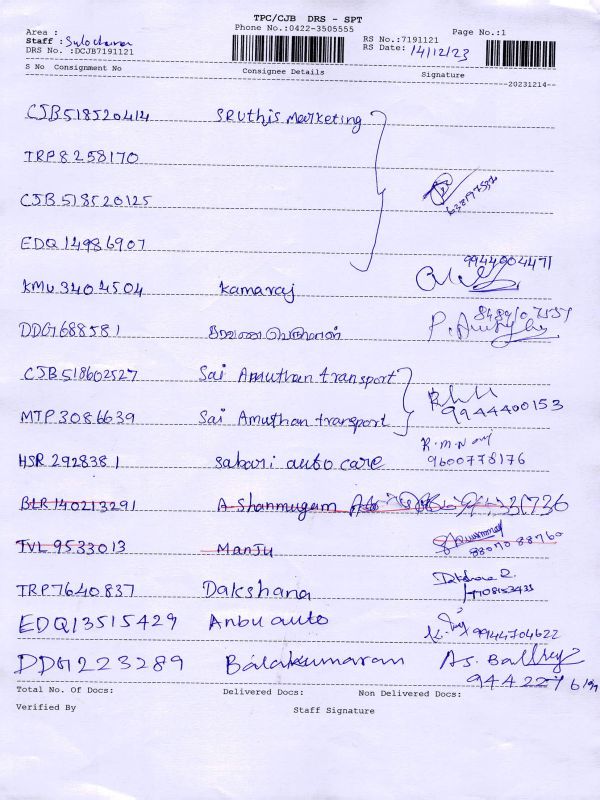 TPC/CJB DRS - SPT
Phone No.:0422-3505555
Area :
Staff : Sulochana
DRS No. :DCJB7191121
RS No.:7191121
RS Date: 14/12/23
Page No.:1
S No Consignment No Consignee Details Signature
--20231214--
CJB518520414 Sruthis Marketing
TRP8258170
CJB518520125
EDQ14986907
9944904471
KMU3404504 Kamaraj
DDG1688581
CJB518602527 Sai Amuthan transport
9944400153
MTP3086639 Sai Amuthan transport
HSR2928381 Sabari auto care 9600778176
BLR140213291 A Shanmugam
TVL9533013 Manju 88070 88760
TRP7640837 Dakshana
EDQ13515429 Anbu auto 9944704622
DDG1223289 Balakumaran
Total No. Of Docs: Delivered Docs: Non Delivered Docs:
Verified By Staff Signature